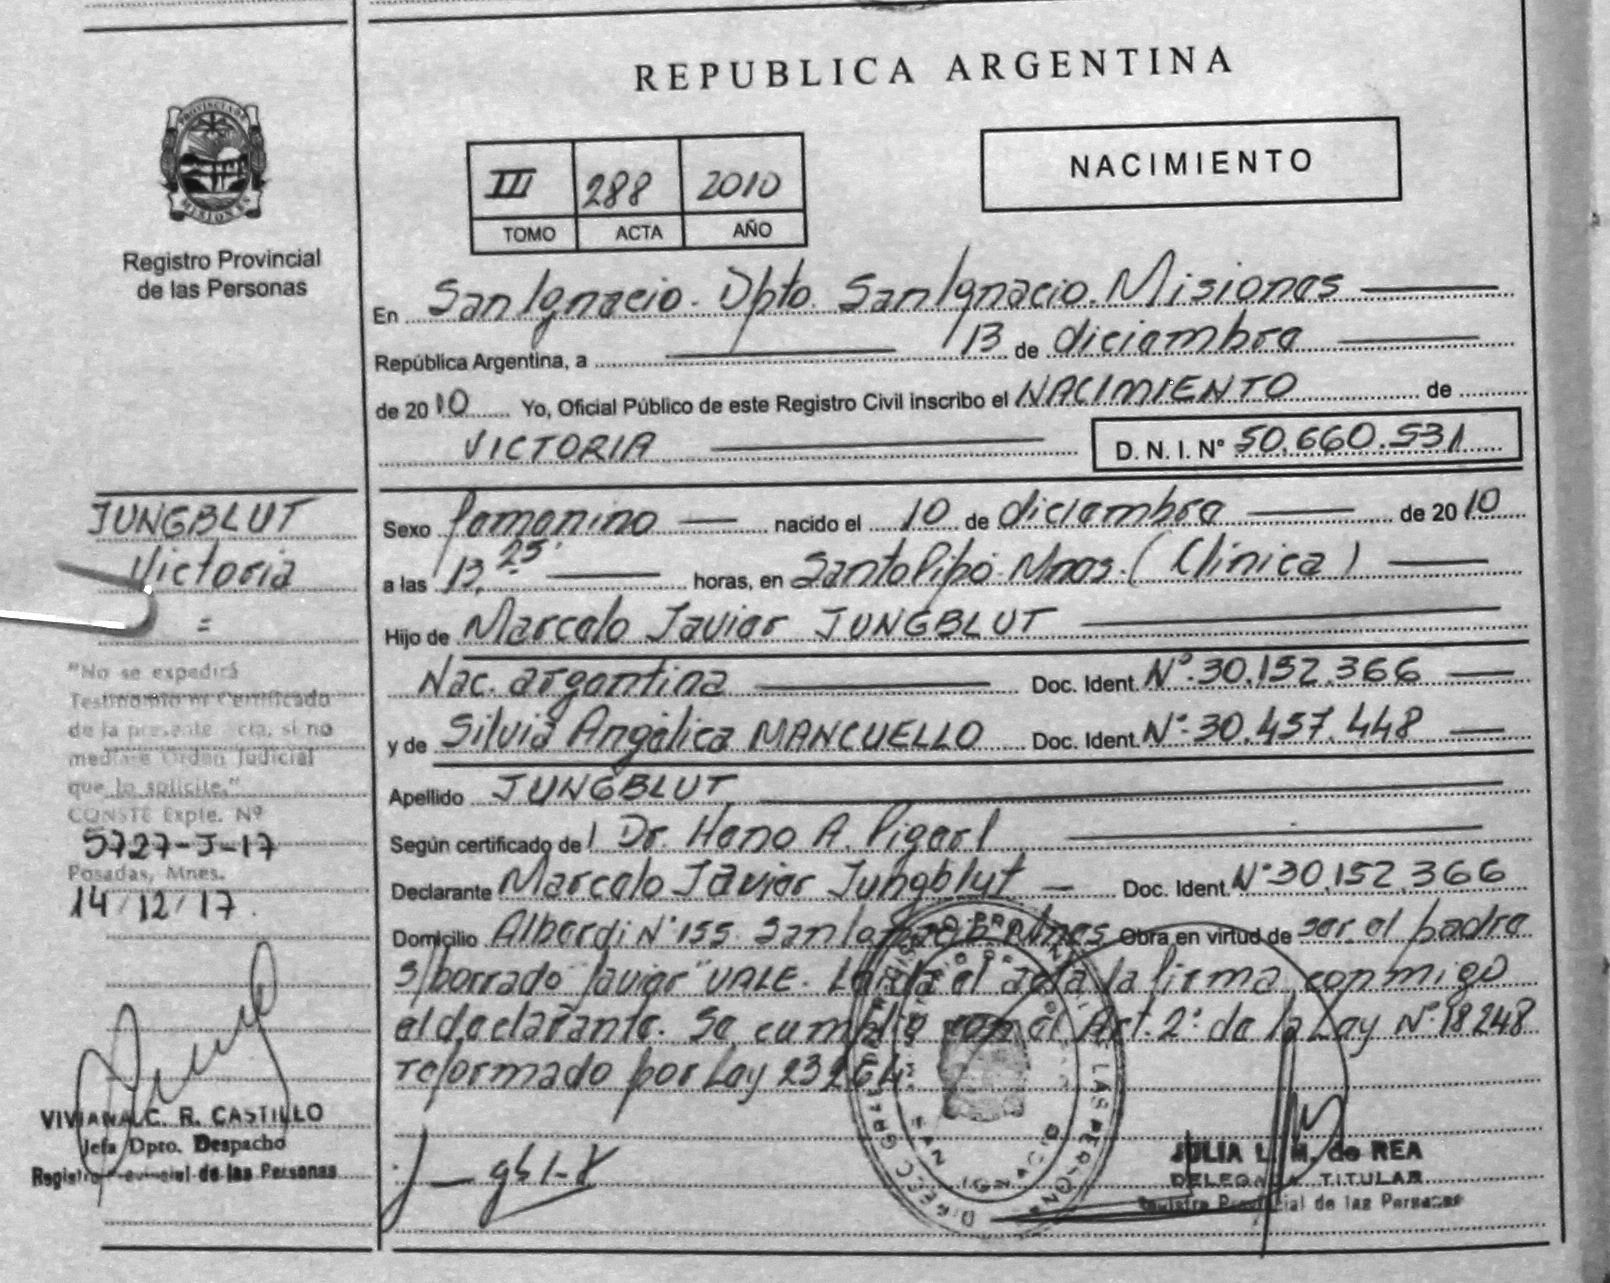 REPUBLICA ARGENTINA
PROVINCIA DE
MISIONES
Registro Provincial
de las Personas
III 288 2010
TOMO ACTA AÑO
NACIMIENTO
En San Ignacio. Dpto. San Ignacio. Misiones
República Argentina, a 13 de diciembre
de 2010 Yo, Oficial Público de este Registro Civil inscribo el NACIMIENTO de
VICTORIA D. N. I. Nº 50.660.531
JUNGBLUT
Victoria
=
Sexo femenino nacido el 10 de diciembre de 2010
a las 13,25' horas, en Santo Pipó Mnes. (Clinica)
Hijo de Marcelo Javier JUNGBLUT
Nac. argentina Doc. Ident. Nº. 30.152.366
y de Silvia Angélica MANCUELLO Doc. Ident. Nº. 30.457.448
Apellido JUNGBLUT
Según certificado de Dr. Heno A.
Declarante Marcelo Javier Jungblut Doc. Ident. Nº 30.152.366
Domicilio Alberdi Nº 155 San Ignacio Mnes Obra en virtud de ser el padre
S/borrado "Javier" VALE. Leída el acta la firma conmigo
el declarante. Se cumplió con el Art. 2º de la Ley Nº 18248
reformado por Ley 23264.
"No se expedirá
Testimonio ni Certificado
de la presente acta, si no
mediare Orden Judicial
que lo solicite."
CONSTE Expte. Nº
5727-J-17
Posadas, Mnes.
14/12/17.
VIVIANA C. R. CASTILLO
Jefa Dpto. Despacho
Registro Provincial de las Personas
JULIA L. M. de REA
DELEGADA TITULAR
Registro Provincial de las Personas